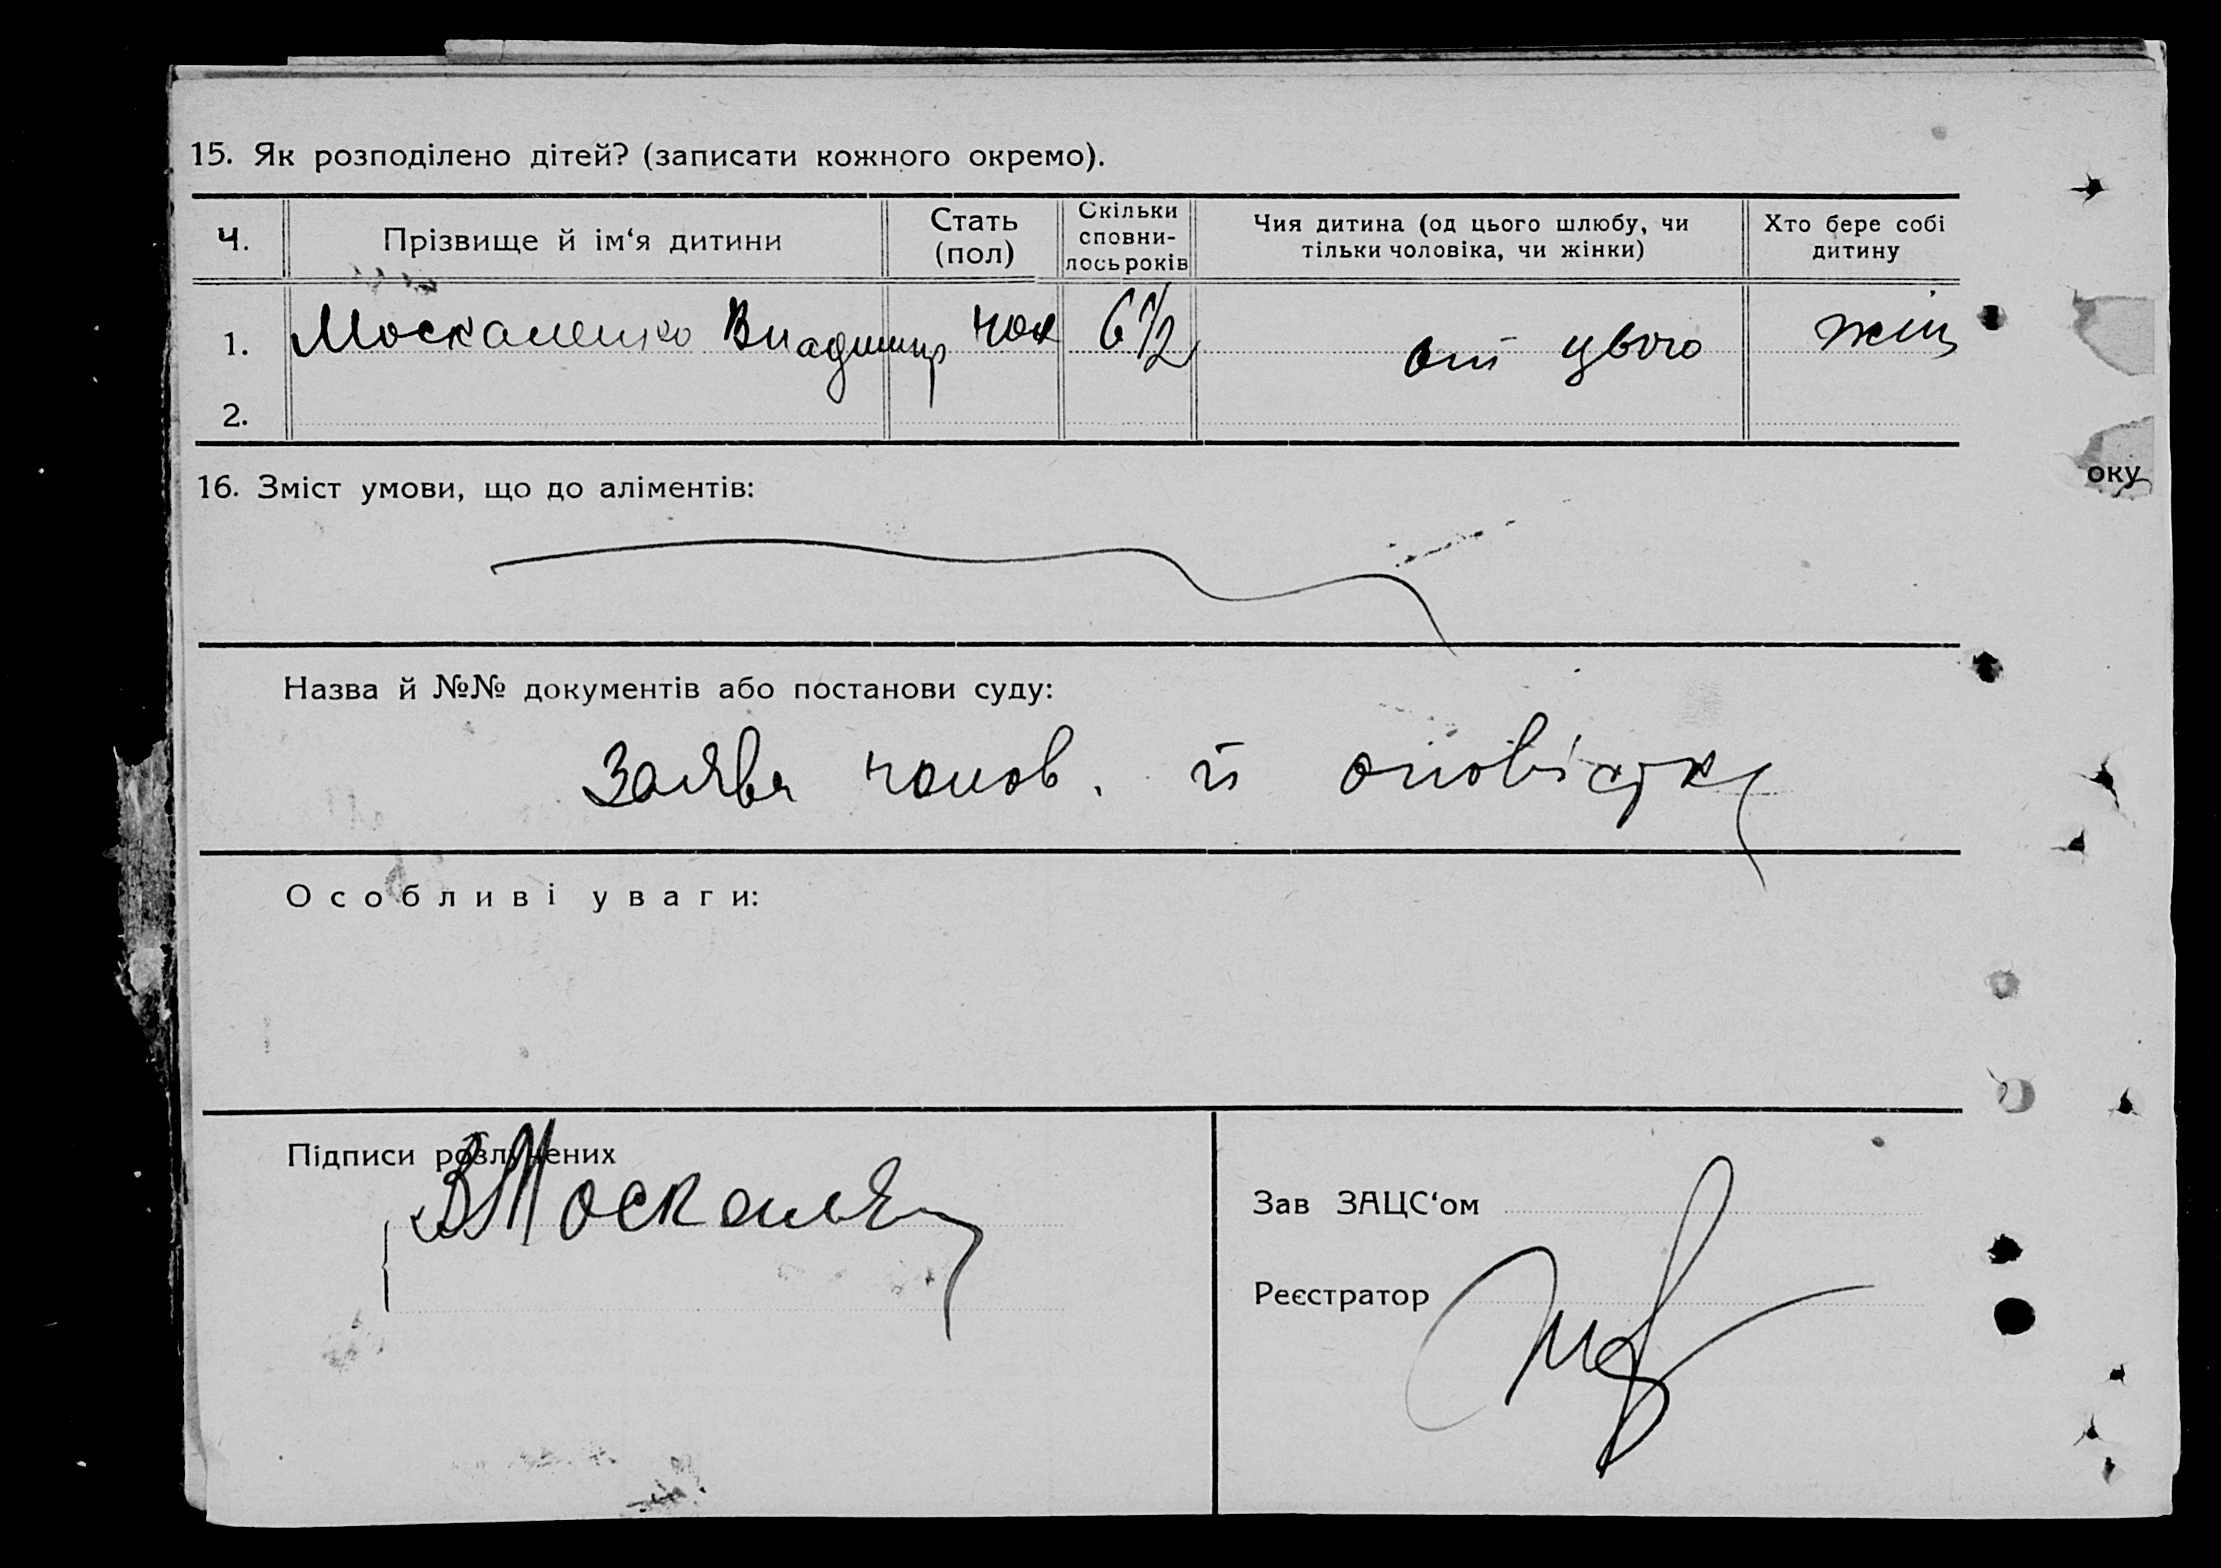 15. Як розподілено дітей? (записати кожного окремо).
Ч. Прізвище й ім‘я дитини Стать (пол) Скільки сповни-лось років Чия дитина (од цього шлюбу, чи тільки чоловіка, чи жінки) Хто бере собі дитину
1. Москаленко Владимир чол 6 1/2 от цього жін
2.
16. Зміст умови, що до аліментів:
оку
Назва й №№ документів або постанови суду:
Заява чолов. й оповістка
Особливі уваги:
Підписи розлучених
ВМоскале
Зав ЗАЦС‘ом
Реєстратор